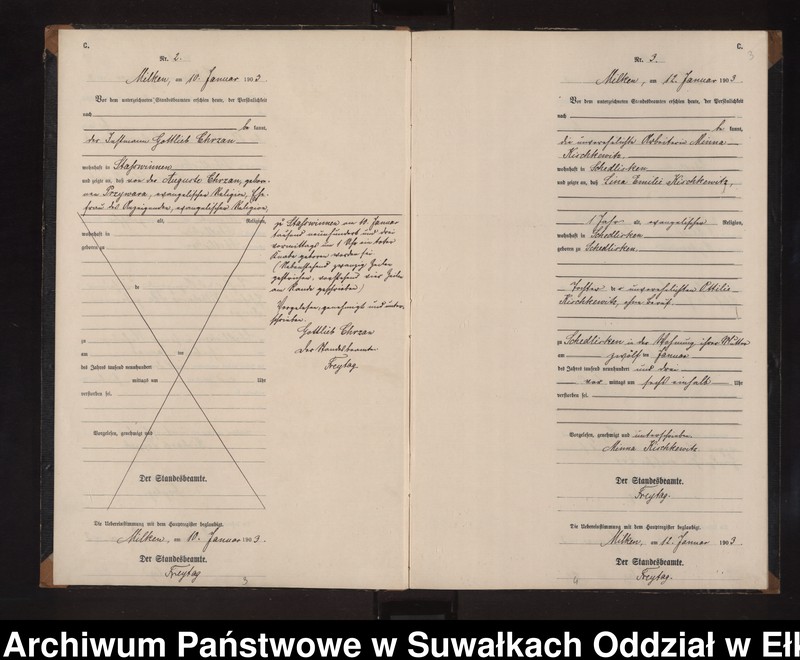 C.
Nr. 2.
Milken, am 10. Januar 1903.
Vor dem unterzeichneten Standesbeamten erschien heute, der Persönlichkeit
nach
be kannt,
der Instmann Gottlieb Chrzan
wohnhaft in Stasswinnen
und zeigte an, daß von der Auguste Chrzan, gebore-
nen Przywara, evangelischer Religion, Ehe-
frau des Anzeigenden, evangelischer Religion,
alt, Religion,
wohnhaft in
geboren zu
in
zu
am ten
des Jahres tausend neunhundert
mittags um Uhr
verstorben sei.
Vorgelesen, genehmigt und
Der Standesbeamte.
Die Uebereinstimmung mit dem Hauptregister beglaubigt.
Milken, am 10. Januar 1903.
Der Standesbeamte.
Freytag
3
zu Stasswinnen am 10. Januar
tausend neunhundert und drei
vormittags um 1 Uhr ein todter
Knabe geboren worden sei
(Nebenstehend zwanzig Zeilen
gestrichen, vorstehend vier Zeilen
am Rande geschrieben)
Vorgelesen, genehmigt und unter-
schrieben
Gottlieb Chrzan
Der Standesbeamte
Freytag.
C.
3
Nr. 3.
Milken, am 12. Januar 1903
Vor dem unterzeichneten Standesbeamten erschien heute, der Persönlichkeit
nach
be kannt,
die unverehelichte Arbeiterin Minna
Kirschkewitz
wohnhaft in Schedlisken
und zeigte an, daß Lina Emilie Kirschkewitz,
1 Jahr alt, evangelischer Religion,
wohnhaft in Schedlisken
geboren zu Schedlisken
Tochter der unverehelichten Ottilie
Kirschkewitz, ohne Beruf.
zu Schedlisken in der Wohnung ihrer Mutter
am zwölften Januar
des Jahres tausend neunhundert und drei
vor mittags um sechs einhalb Uhr
verstorben sei.
Vorgelesen, genehmigt und unterschrieben
Minna Kirschkewitz.
Der Standesbeamte.
Freytag.
Die Uebereinstimmung mit dem Hauptregister beglaubigt.
Milken, am 12. Januar 1903
Der Standesbeamte.
Freytag.
4
Archiwum Państwowe w Suwałkach Oddział w Ełk